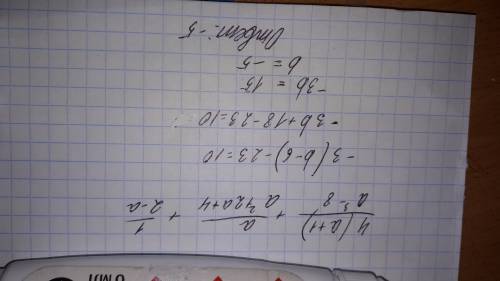 4(a+1)/a³-8 + a/a²+2a+4 + 1/2-a
-3(b-6)-23=10
-3b+18-23=10
-3b = 15
b = -5
Ответ: -5